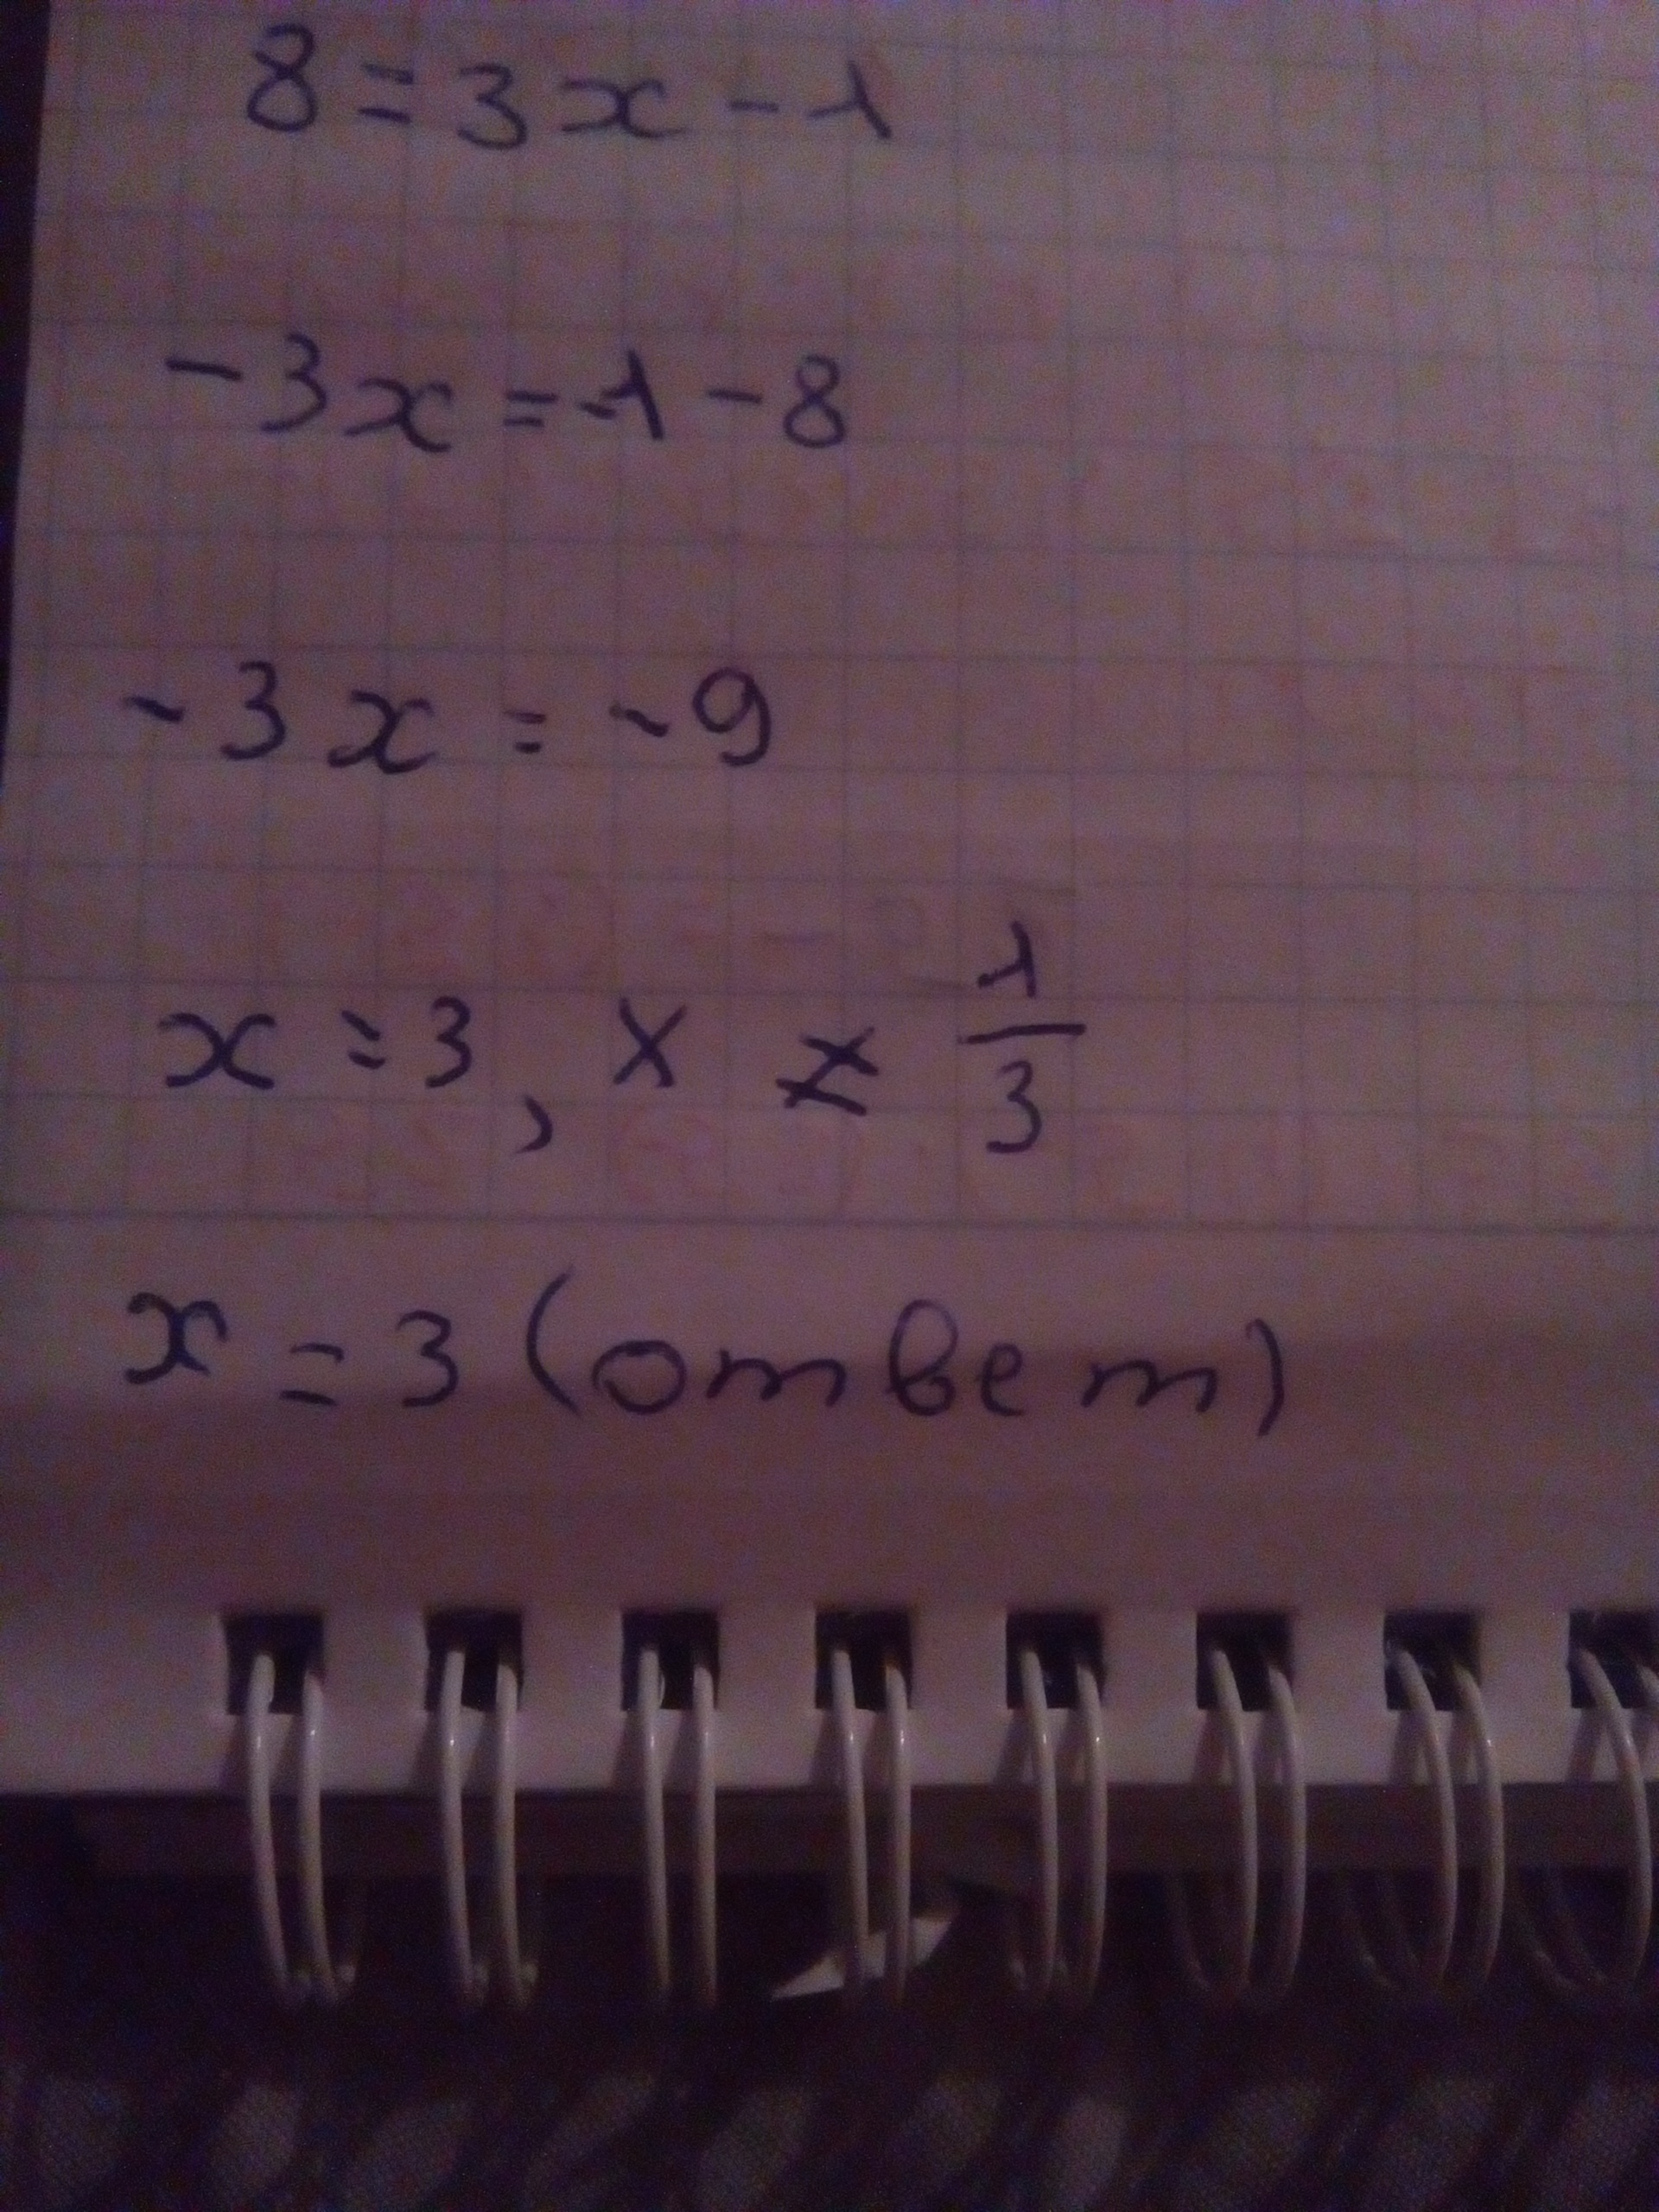 8 = 3x - 1
-3x = -1 - 8
-3x = -9
x = 3, x ≠ 1/3
x = 3 (ответ)